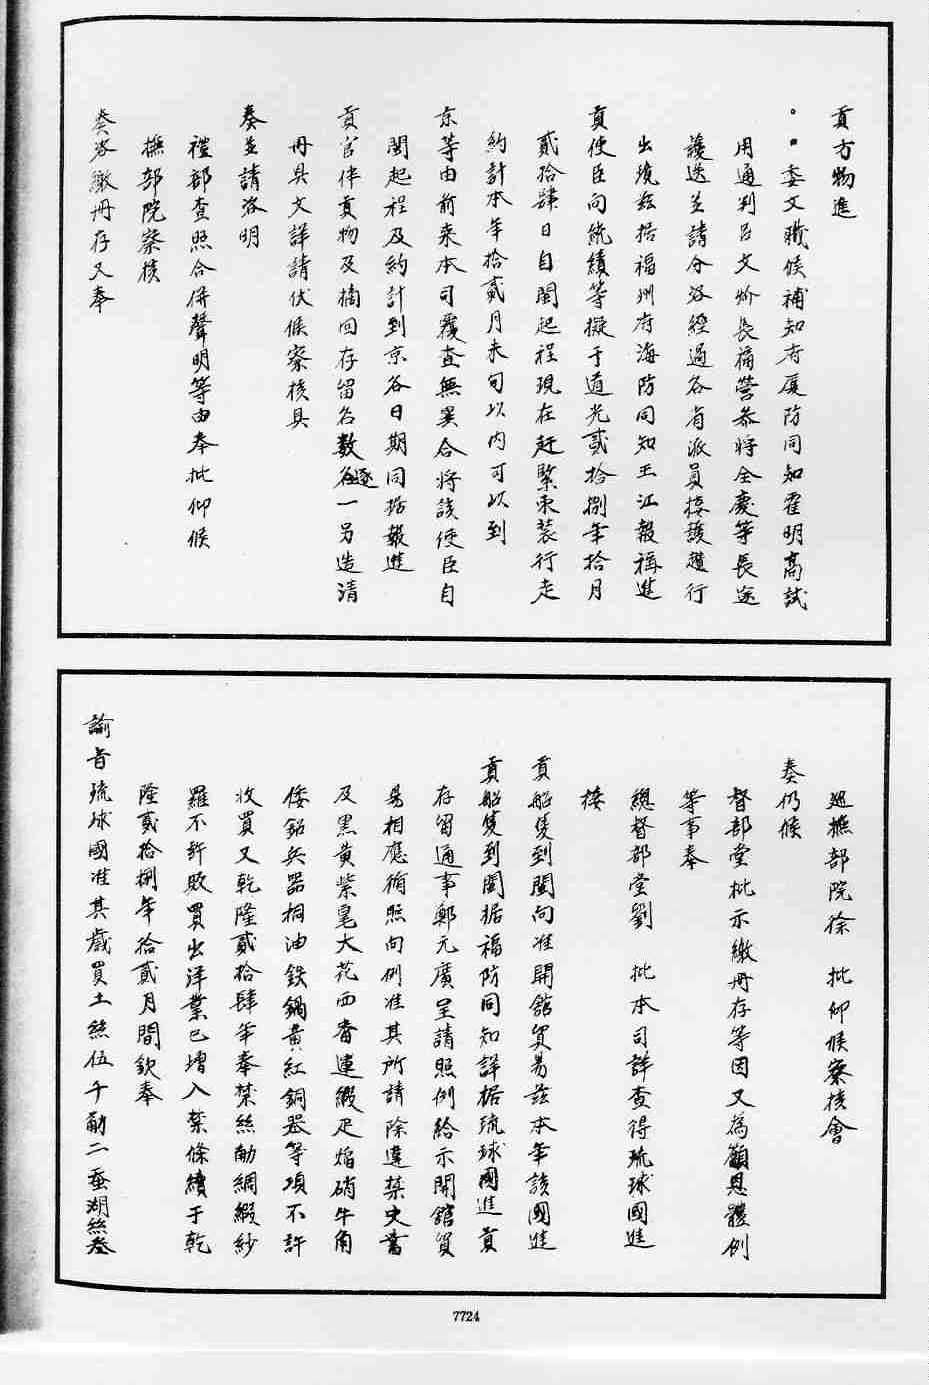 貢方物進
。。委文職候補知府廈防同知霍明高試
用通判呂文炘長福營參將全慶等長途
護送並請分咨經過各省派員接護趲行
出境茲据福州府海防同知王江報稱進
貢使臣向統績等擬于道光貳拾捌年拾月
貳拾肆日自閩起程現在赶緊束裝行走
約計本年拾貳月末旬以內可以到
京等由前來本司覆查無異合將該使臣自
閩起程及約計到京各日期同据報進
貢官伴貢物及摘回存留名數逐一另造清
冊具文詳請伏候察核具
奏並請咨明
禮部查照合併聲明等由奉批仰候
撫部院察核
奏咨繳冊存又奉
廵撫部院徐　批仰候察核會
奏仍候
督部堂批示繳冊存等因又為籲恩體例
等事奉
總督部堂劉　批本司詳查得琉球國進
接
貢船隻到閩向准開舘貿易茲本年該國進
貢船隻到閩据福防同知詳据琉球國進貢
存留通事鄭元廣呈請照例給示開舘貿
易相應循照向例准其所請除違禁史書
及黑黃紫皂大花西番蓮緞疋焰硝牛角
倭鉛兵器桐油鉄鍋黃紅銅器等項不許
收買又乾隆貳拾肆年奉禁絲觔綢緞紗
羅不許販買出洋業已增入禁條續于乾
隆貳拾捌年拾貳月間欽奉
諭旨琉球國准其歲買土絲伍千觔二蚕湖絲叁
7724